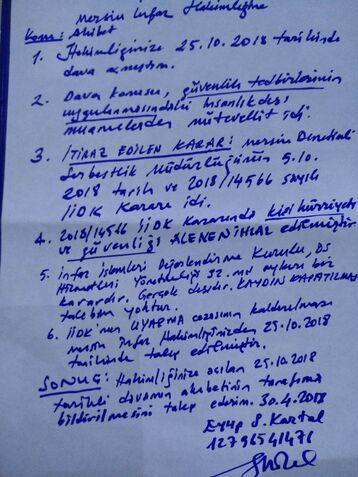 Mersin İnfaz Hakimliğine
Konu: Akibet
1. Hakimliğinize 25.10.2018 tarihinde
dava açmıştım.
2. Dava konusu, güvenlik tedbirlerinin
uygulanmasındaki insanlıkdışı
muamelerden mütevellit idi.
3. İTİRAZ EDİLEN KARAR: Mersin Denetimli
Serbestlik Müdürlüğünün 5.10.
2018 tarih ve 2018/14566 sayılı
İİDK Kararı idi.
4. 2018/14566 İİDK Kararında kişi hürriyeti
ve güvenliği ALENEN İHLAL edilmiştir
5. İnfaz İşlemleri Değerlendirme Kurulu, DS
Hizmetleri Yönetmeliği 52. md aykırı bir
karardır. Gerçek dışıdır. KAYDIN KAPATILMASI
talebim yoktur.
6. İİDK'nın UYARMA cezasının kaldırılması
Mersin İnfaz Hakimliğinizden 25.10.2018
tarihinde talep edilmiştir.
SONUÇ: Hakimliğinize açılan 25.10.2018
tarihli davamın akıbetinin tarafıma
bildirilmesini talep ederim. 30.4.2018
Eyup S. Kartal
12796541476